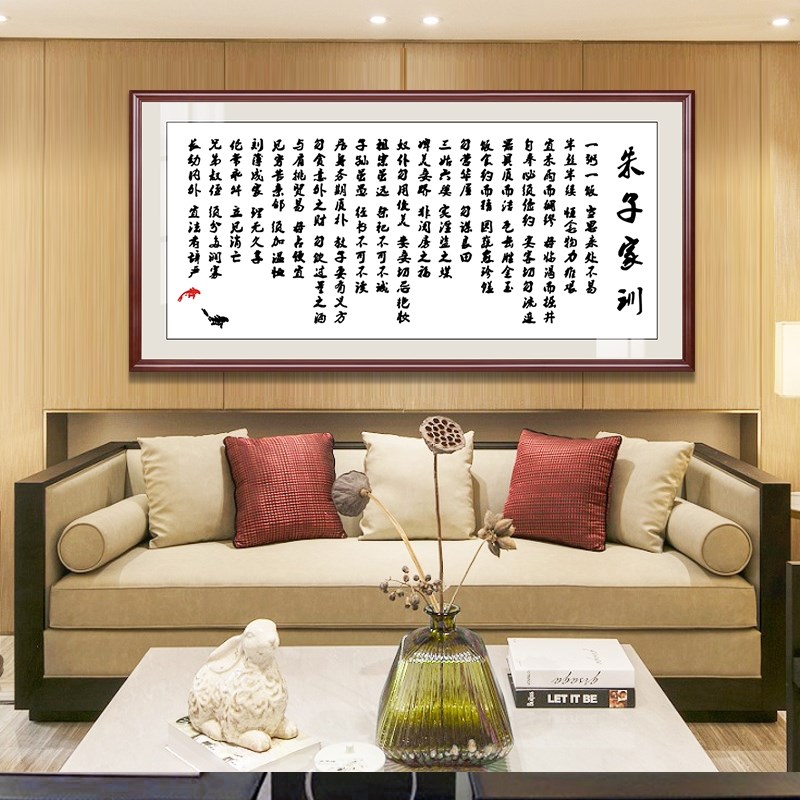 朱子家训
一粥一饭 当思来处不易
半丝半缕 恒念物力维艰
宜未雨而绸缪 毋临渴而掘井
自奉必须俭约 宴客切勿流连
器具质而洁 瓦缶胜金玉
饭食约而精 园蔬愈珍馐
勿营华屋 勿谋良田
三姑六婆 实淫盗之媒
婢美妾娇 非闺房之福
奴仆勿用俊美 妻妾切忌艳妆
祖宗虽远 祭祀不可不诚
子孙虽愚 经书不可不读
居身务期质朴 教子要有义方
勿贪意外之财 勿饮过量之酒
与肩挑贸易 毋占便宜
见穷苦亲邻 须加温恤
刻薄成家 理无久享
伦常乖舛 立见消亡
兄弟叔侄 须分多润寡
长幼内外 宜法肃辞严
LET IT BE